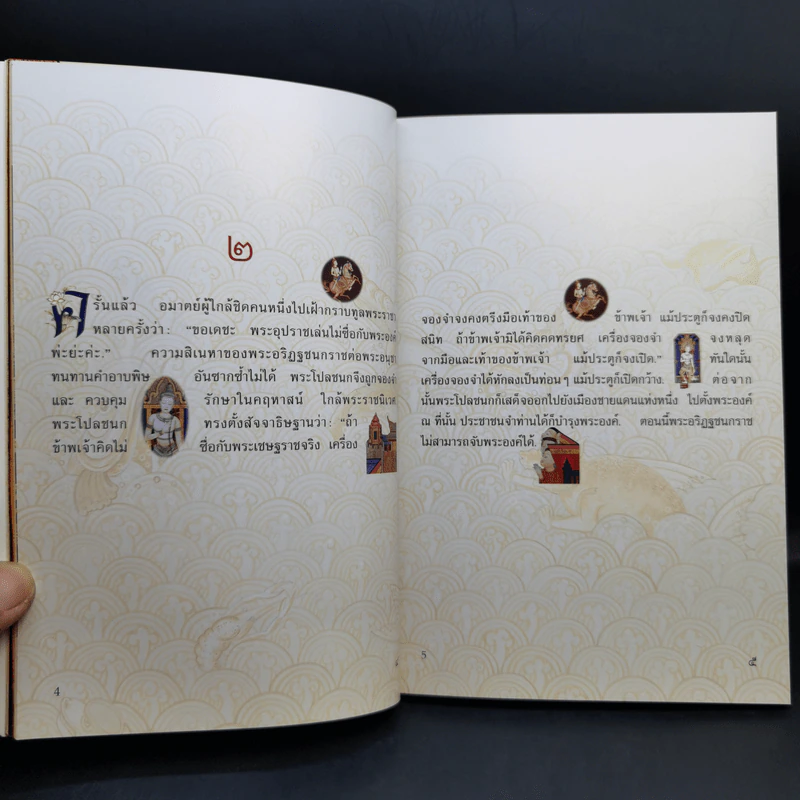 ๒
ครั้นแล้ว อมาตย์ผู้ใกล้ชิดคนหนึ่งไปเฝ้ากราบทูลพระราชา
หลายครั้งว่า: “ขอเดชะ พระอุปราชเล่นไม่ซื่อกับพระองค์
พ่ะย่ะค่ะ.” ความสิเนหาของพระอริฏฐชนกราชต่อพระอนุชา
ทนทานคำอาบพิษ อันซากซ้ำไม่ได้ พระโปลชนกจึงถูกจองจำ
และ ควบคุม รักษาในคฤหาสน์ ใกล้พระราชนิเวศ
พระโปลชนก ทรงตั้งสัจจาธิษฐานว่า: “ถ้า
ข้าพเจ้าคิดไม่ ซื่อกับพระเชษฐราชจริง เครื่อง
4
จองจำจงคงตรึงมือเท้าของ ข้าพเจ้า แม้ประตูก็จงคงปิด
สนิท ถ้าข้าพเจ้ามิได้คิดคดทรยศ เครื่องจองจำ จงหลุด
จากมือและเท้าของข้าพเจ้า แม้ประตูก็จงเปิด.” ทันใดนั้น
เครื่องจองจำได้หักลงเป็นท่อนๆ แม้ประตูก็เปิดกว้าง. ต่อจาก
นั้นพระโปลชนกก็เสด็จออกไปยังเมืองชายแดนแห่งหนึ่ง ไปตั้งพระองค์
ณ ที่นั้น ประชาชนจำท่านได้ก็บำรุงพระองค์. ตอนนี้พระอริฏฐชนกราช
ไม่สามารถจับพระองค์ได้.
5
๕